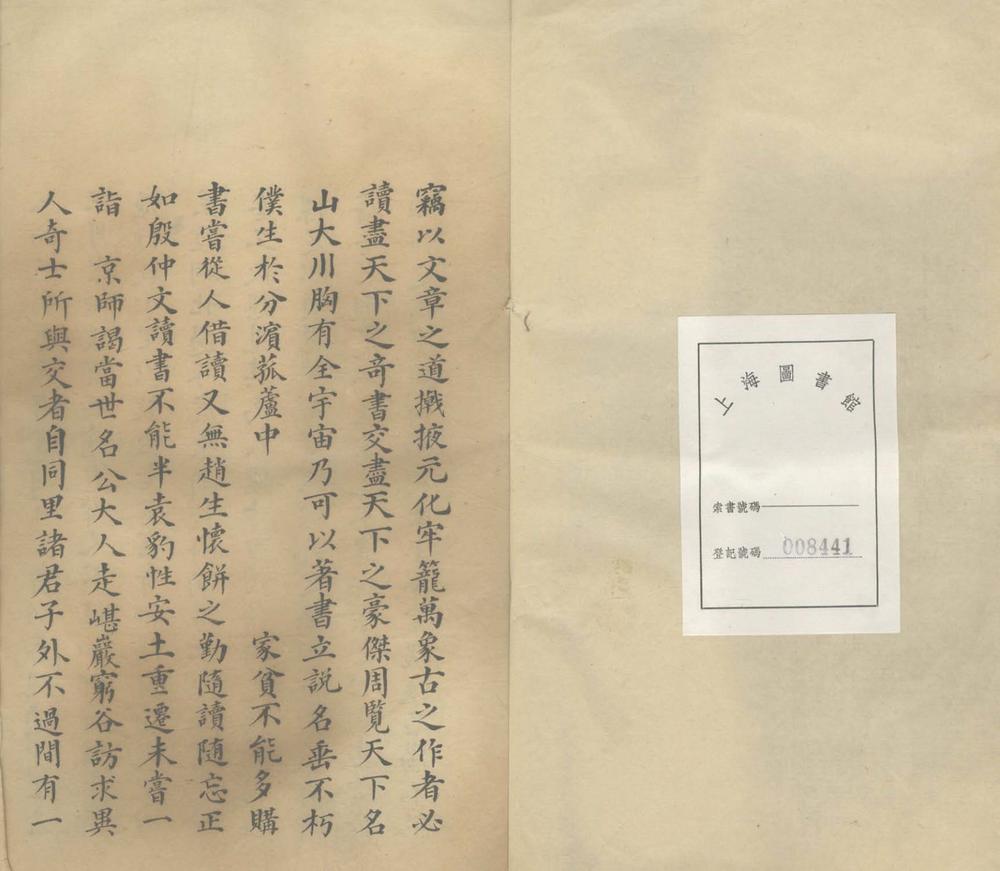 上海圖書館
索書號碼
登記號碼 008441
竊以文章之道擙掖元化牢籠萬象古之作者必
讀盡天下之奇書交盡天下之豪傑周覽天下名
山大川胸有全宇宙乃可以著書立説名垂不朽
僕生於分濱菰蘆中 家貧不能多購
書嘗從人借讀又無趙生懷餅之勤隨讀随忘正
如殷仲文讀書不能半袁豹性安土重遷未嘗一
詣 京師謁當世名公大人走嵁巖窮谷訪求異
人奇士所與交者自同里諸君子外不過間有一